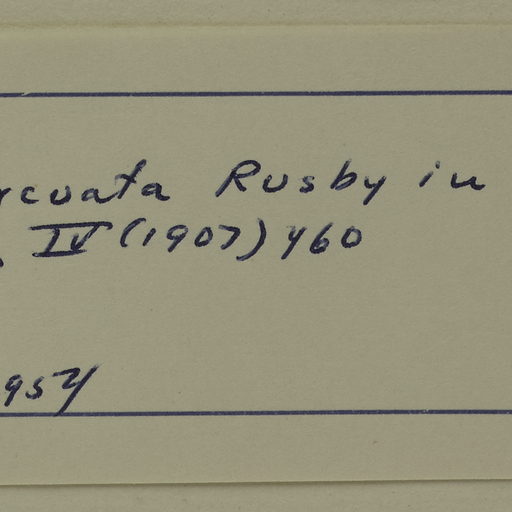 rcuata Rusby in
IV (1907) 460
1954